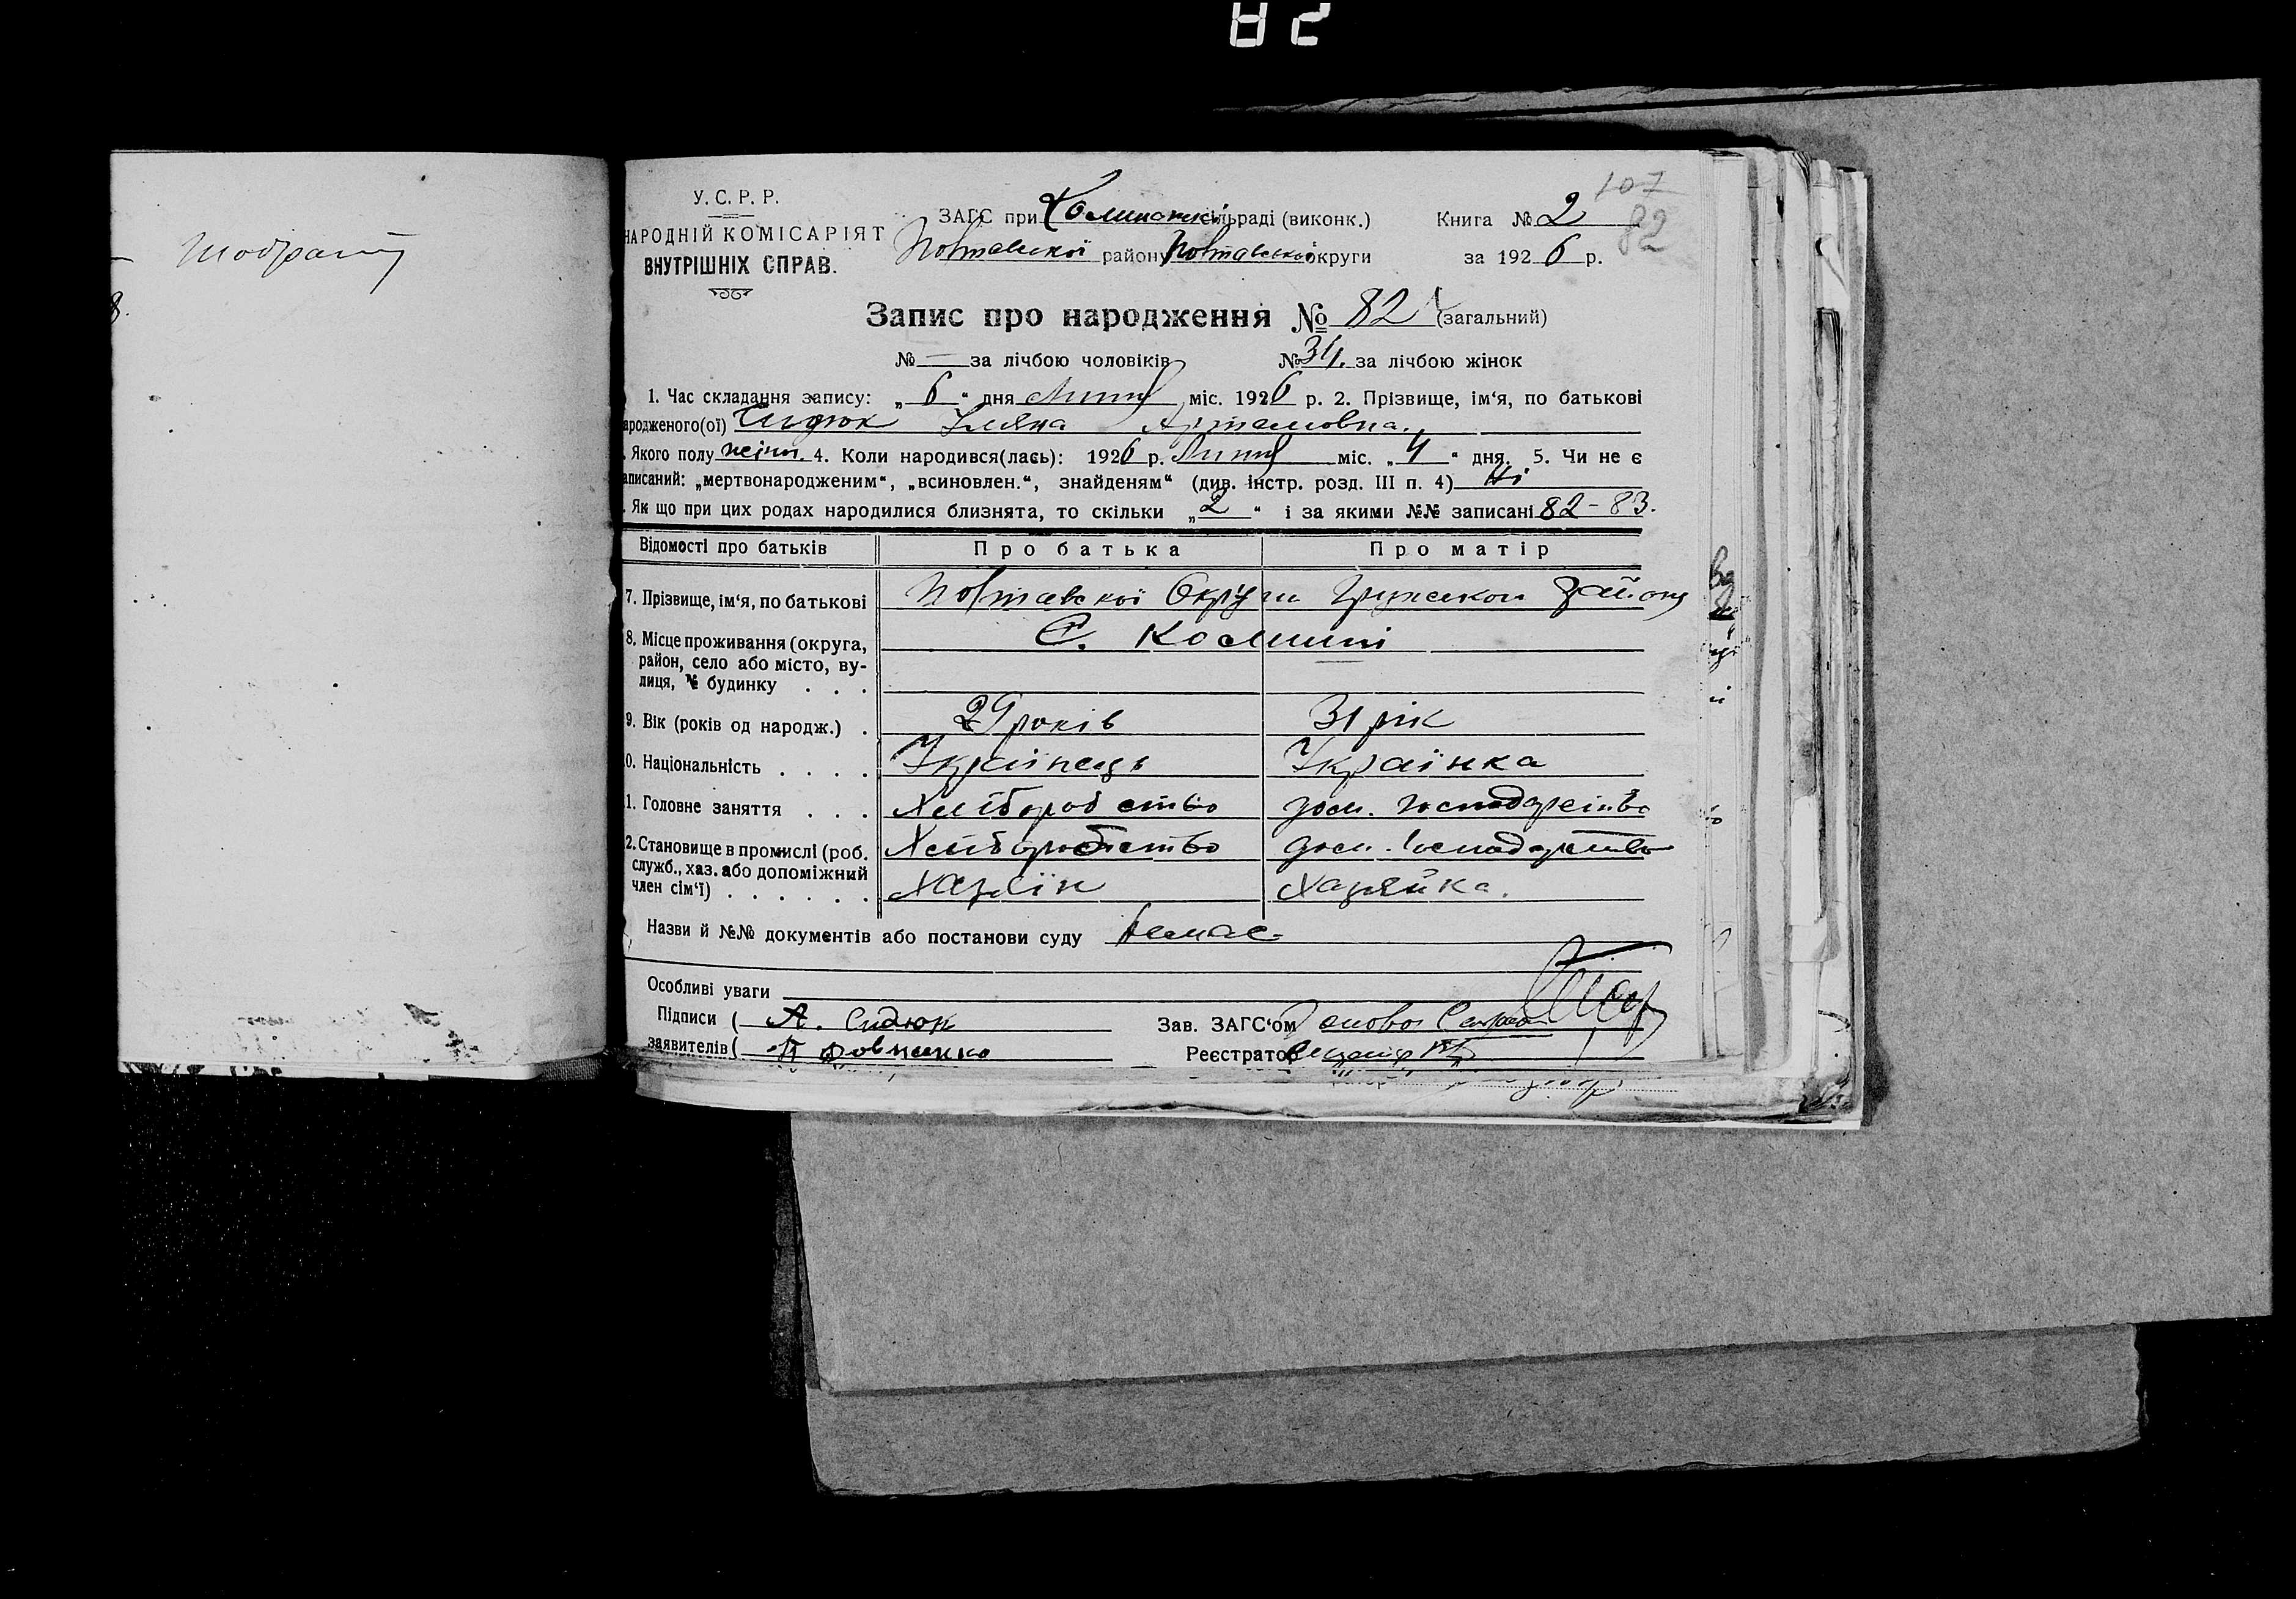 82
107
У. С. Р. Р.
НАРОДНІЙ КОМІСАРІЯТ
ВНУТРІШНІХ СПРАВ.
ЗАГС при сільраді (виконк.)
Книга № 2
82
Полтавської району Полтавської округи
за 1926 р.
Запис про народження № 82 (загальний)
№ — за лічбою чоловіків № 34. за лічбою жінок
1. Час складання запису: „ 6 “ дня Липня міс. 1926 р. 2. Прізвище, ім‘я, по батькові
ародженого(ої) Сидюк Уляна Артамовна.
. Якого полу жіни. 4. Коли народився(лась): 1926 р. Липня міс. „ 4 “ дня. 5. Чи не є
аписаний: „мертвонародженим“, „всиновлен.“, знайденям“ (див. інстр. розд. III п. 4) Ні
. Як що при цих родах народилися близнята, то скільки „ 2 “ і за якими №№ записані 82-83.
Відомості про батьків Про батька Про матір
7. Прізвище, ім‘я, по батькові Полтавської Округи району
8. Місце проживання (округа, С.
район, село або місто, ву-
лиця, № будинку . . .
9. Вік (років од народж.) . 29 років 31 рік
0. Національність . . . . Українець Українка
1. Головне заняття . . . Хліборобство дом. господарство
2. Становище в промислі (роб. Хліборобство дом. господарство
служб., хаз. або допоміжний
член сім‘ї) . . . . . . Хазяїн Хазяйка.
Назви й №№ документів або постанови суду Немає
Особливі уваги
Підписи ( А. Сидюк Зав. ЗАГС‘ом
заявителів ( Реєстратор